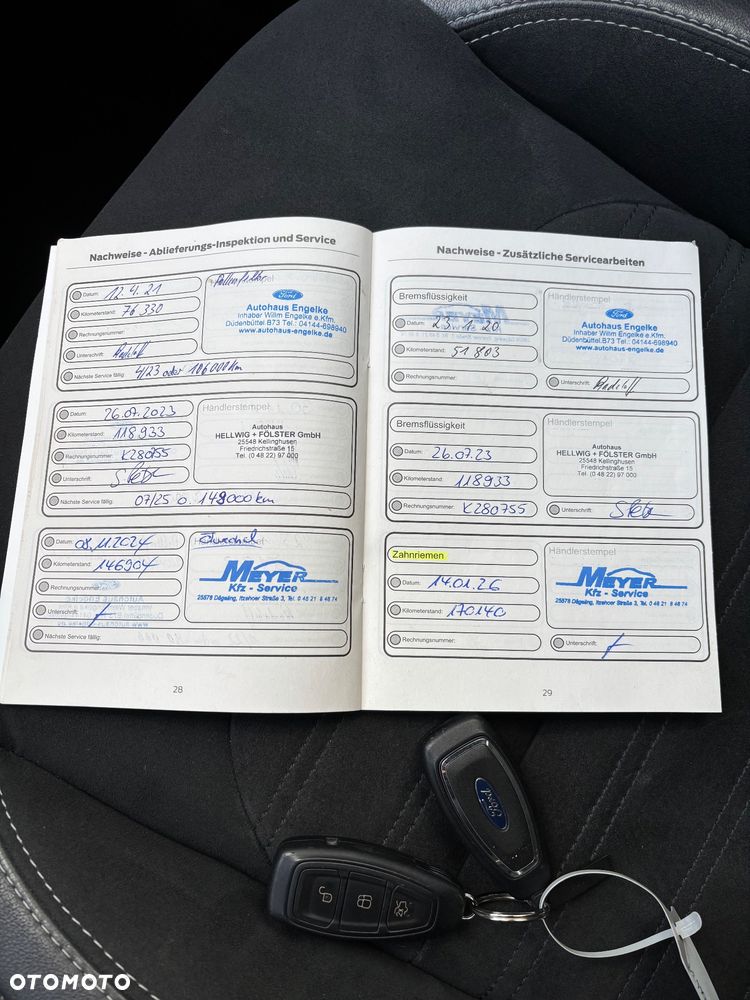 Nachweise - Ablieferungs-Inspektion und Service
Datum: 12.4.21
Kilometerstand: 76 330
Rechnungsnummer:
Unterschrift:
Nächste Service fällig: 4/23 oder 106000km
Ford
Autohaus Engelke
Inhaber Willm Engelke e.Kfm.
Düdenbüttel.B73 Tel.: 04144-698940
www.autohaus-engelke.de
Datum: 26.07.2023
Kilometerstand: 118933
Rechnungsnummer: K28055
Unterschrift:
Nächste Service fällig: 07/25 o. 148000km
Händlerstempel
Autohaus
HELLWIG + FÖLSTER GmbH
25548 Kellinghusen
Friedrichstraße 15
Tel. (0 48 22) 97 000
Datum: 08.11.2024
Kilometerstand: 146904
Rechnungsnummer:
Unterschrift:
Nächste Service fällig:
MEYER
Kfz - Service
25578 Dägeling, Itzehoer Straße 3, Tel. 0 48 21 8 48 74
28
Nachweise - Zusätzliche Servicearbeiten
Bremsflüssigkeit
Datum: 23.1.20
Kilometerstand: 51 803
Rechnungsnummer:
Händlerstempel
Ford
Autohaus Engelke
Inhaber Willm Engelke e.Kfm.
Düdenbüttel.B73 Tel.: 04144-698940
www.autohaus-engelke.de
Unterschrift:
Bremsflüssigkeit
Datum: 26.07.23
Kilometerstand: 118933
Rechnungsnummer: K280755
Händlerstempel
Autohaus
HELLWIG + FÖLSTER GmbH
25548 Kellinghusen
Friedrichstraße 15
Tel. (0 48 22) 97 000
Unterschrift:
Zahnriemen
Datum: 14.01.26
Kilometerstand: 170140
Rechnungsnummer:
Händlerstempel
MEYER
Kfz - Service
25578 Dägeling, Itzehoer Straße 3, Tel. 0 48 21 8 48 74
Unterschrift:
29
Ford
OTOMOTO